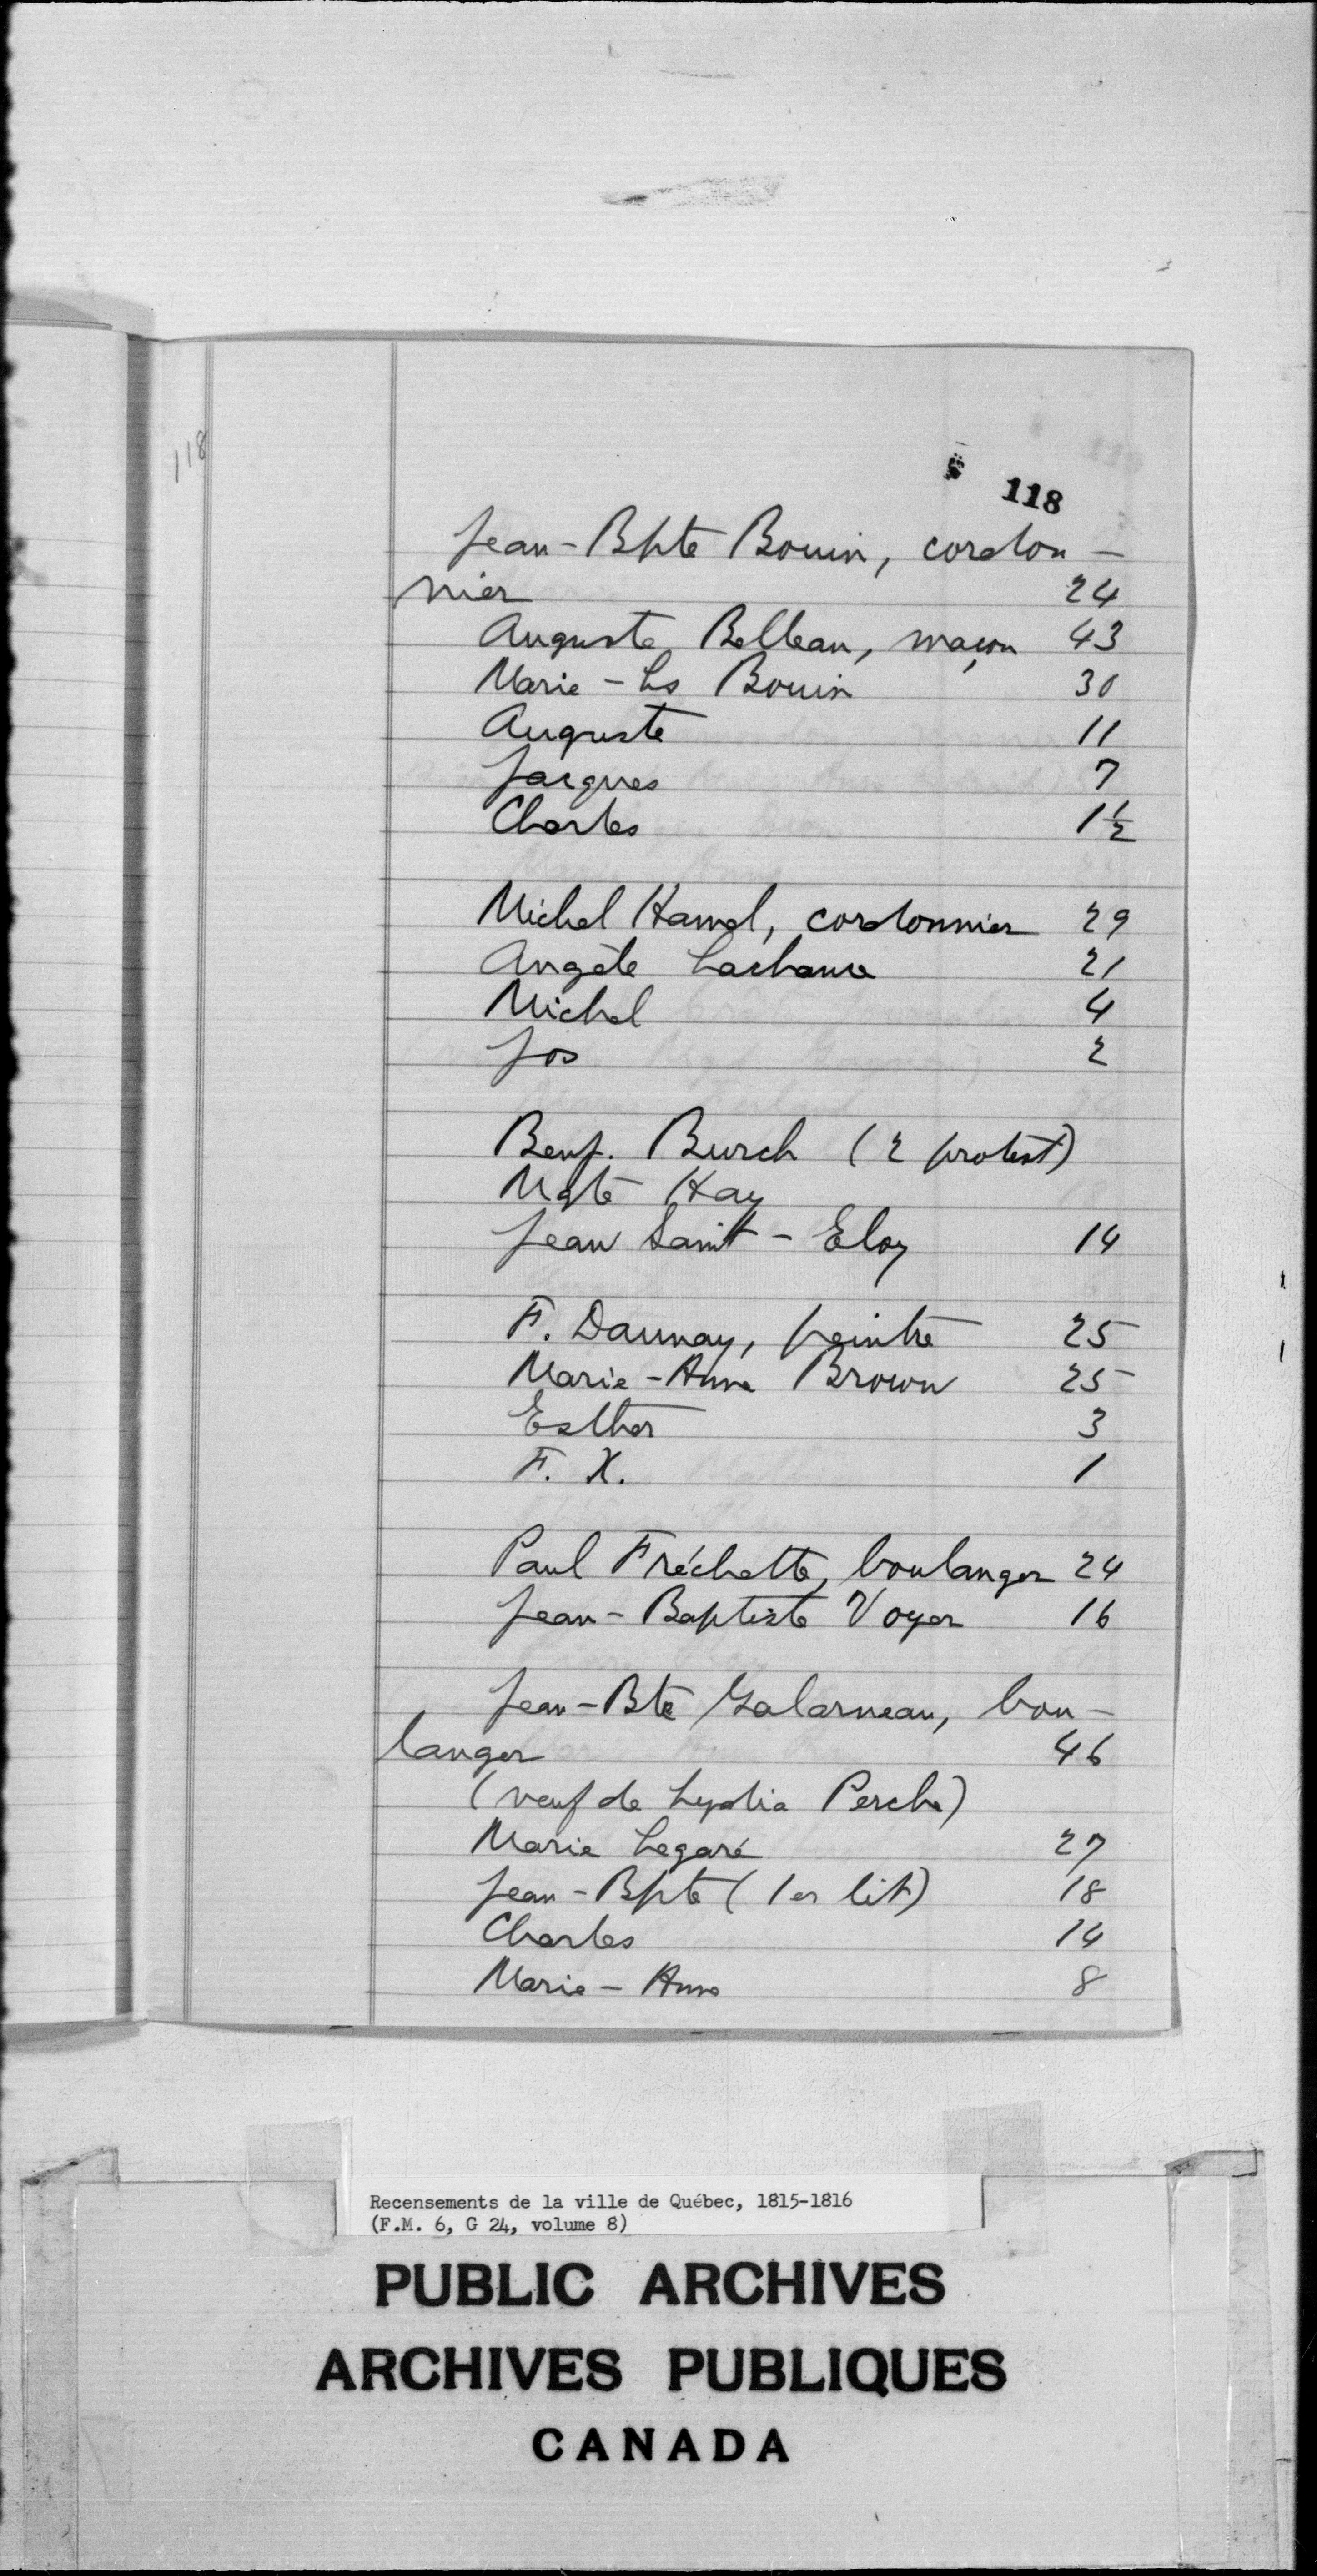 118
118
Jean-Bpte Bouin, cordon-
nier 24
Auguste Belleau, maçon 43
Marie-Ls Bouin 30
Auguste 11
Jacques 7
Charles 1½
Michel Hamel, cordonnier 29
Angèle Lachance 21
Michel 4
Jos 2
Benj. Burch (2 protest)
Mgte Hay
Jean Saint-Eloy 14
F. Daunay, peintre 25
Marie-Anne Brown 25
Esther 3
F. X. 1
Paul Fréchette, boulanger 24
Jean-Baptiste Voyer 16
Jean-Bte Galarneau, bou-
langer 46
(veuf de Lydia Perche)
Marie Legaré 27
Jean-Bpte (1er lit) 18
Charles 14
Marie-Anne 8
Recensements de la ville de Québec, 1815-1816
(F.M. 6, G 24, volume 8)
PUBLIC ARCHIVES
ARCHIVES PUBLIQUES
CANADA